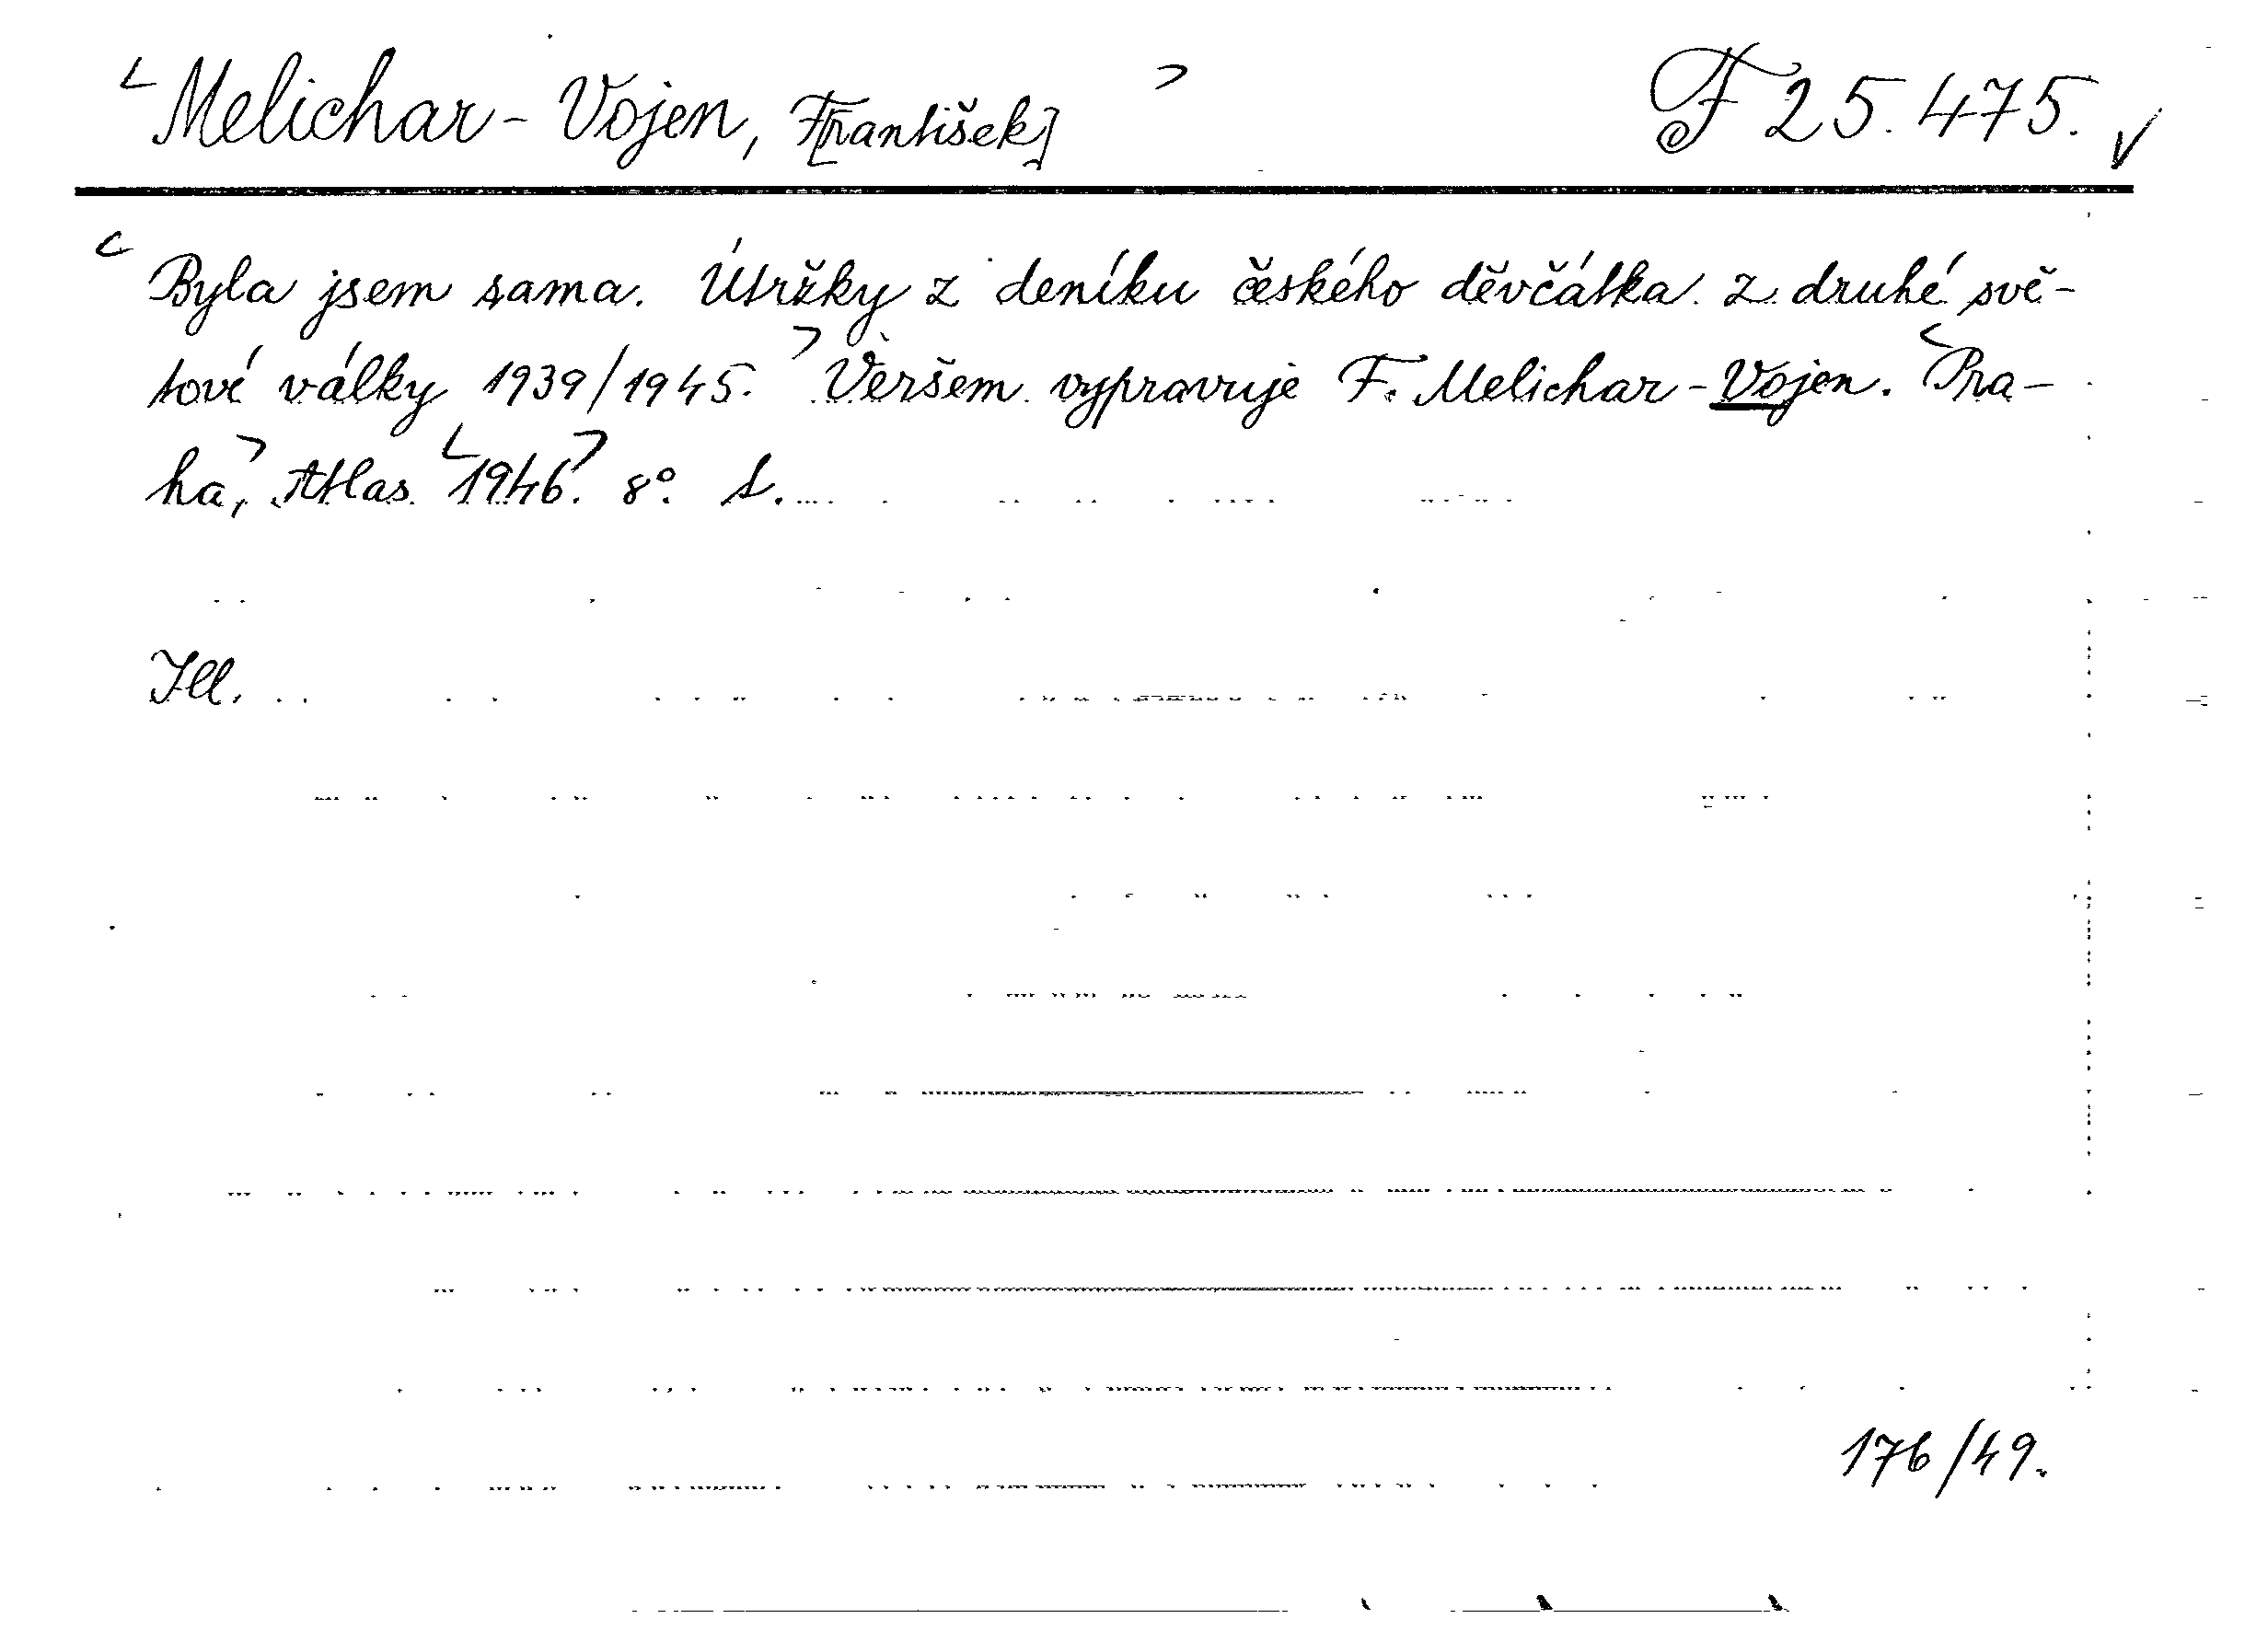 Melichar-Vojen, F[rantišek] F 25.475.
Byla jsem sama. Útržky z deníku českého děvčátka z druhé svě-
tové války 1939/1945. Veršem vypravuje F. Melichar-Vojen. Pra-
ha, Atlas 1946. 8°. S.
Ill.
176/49.